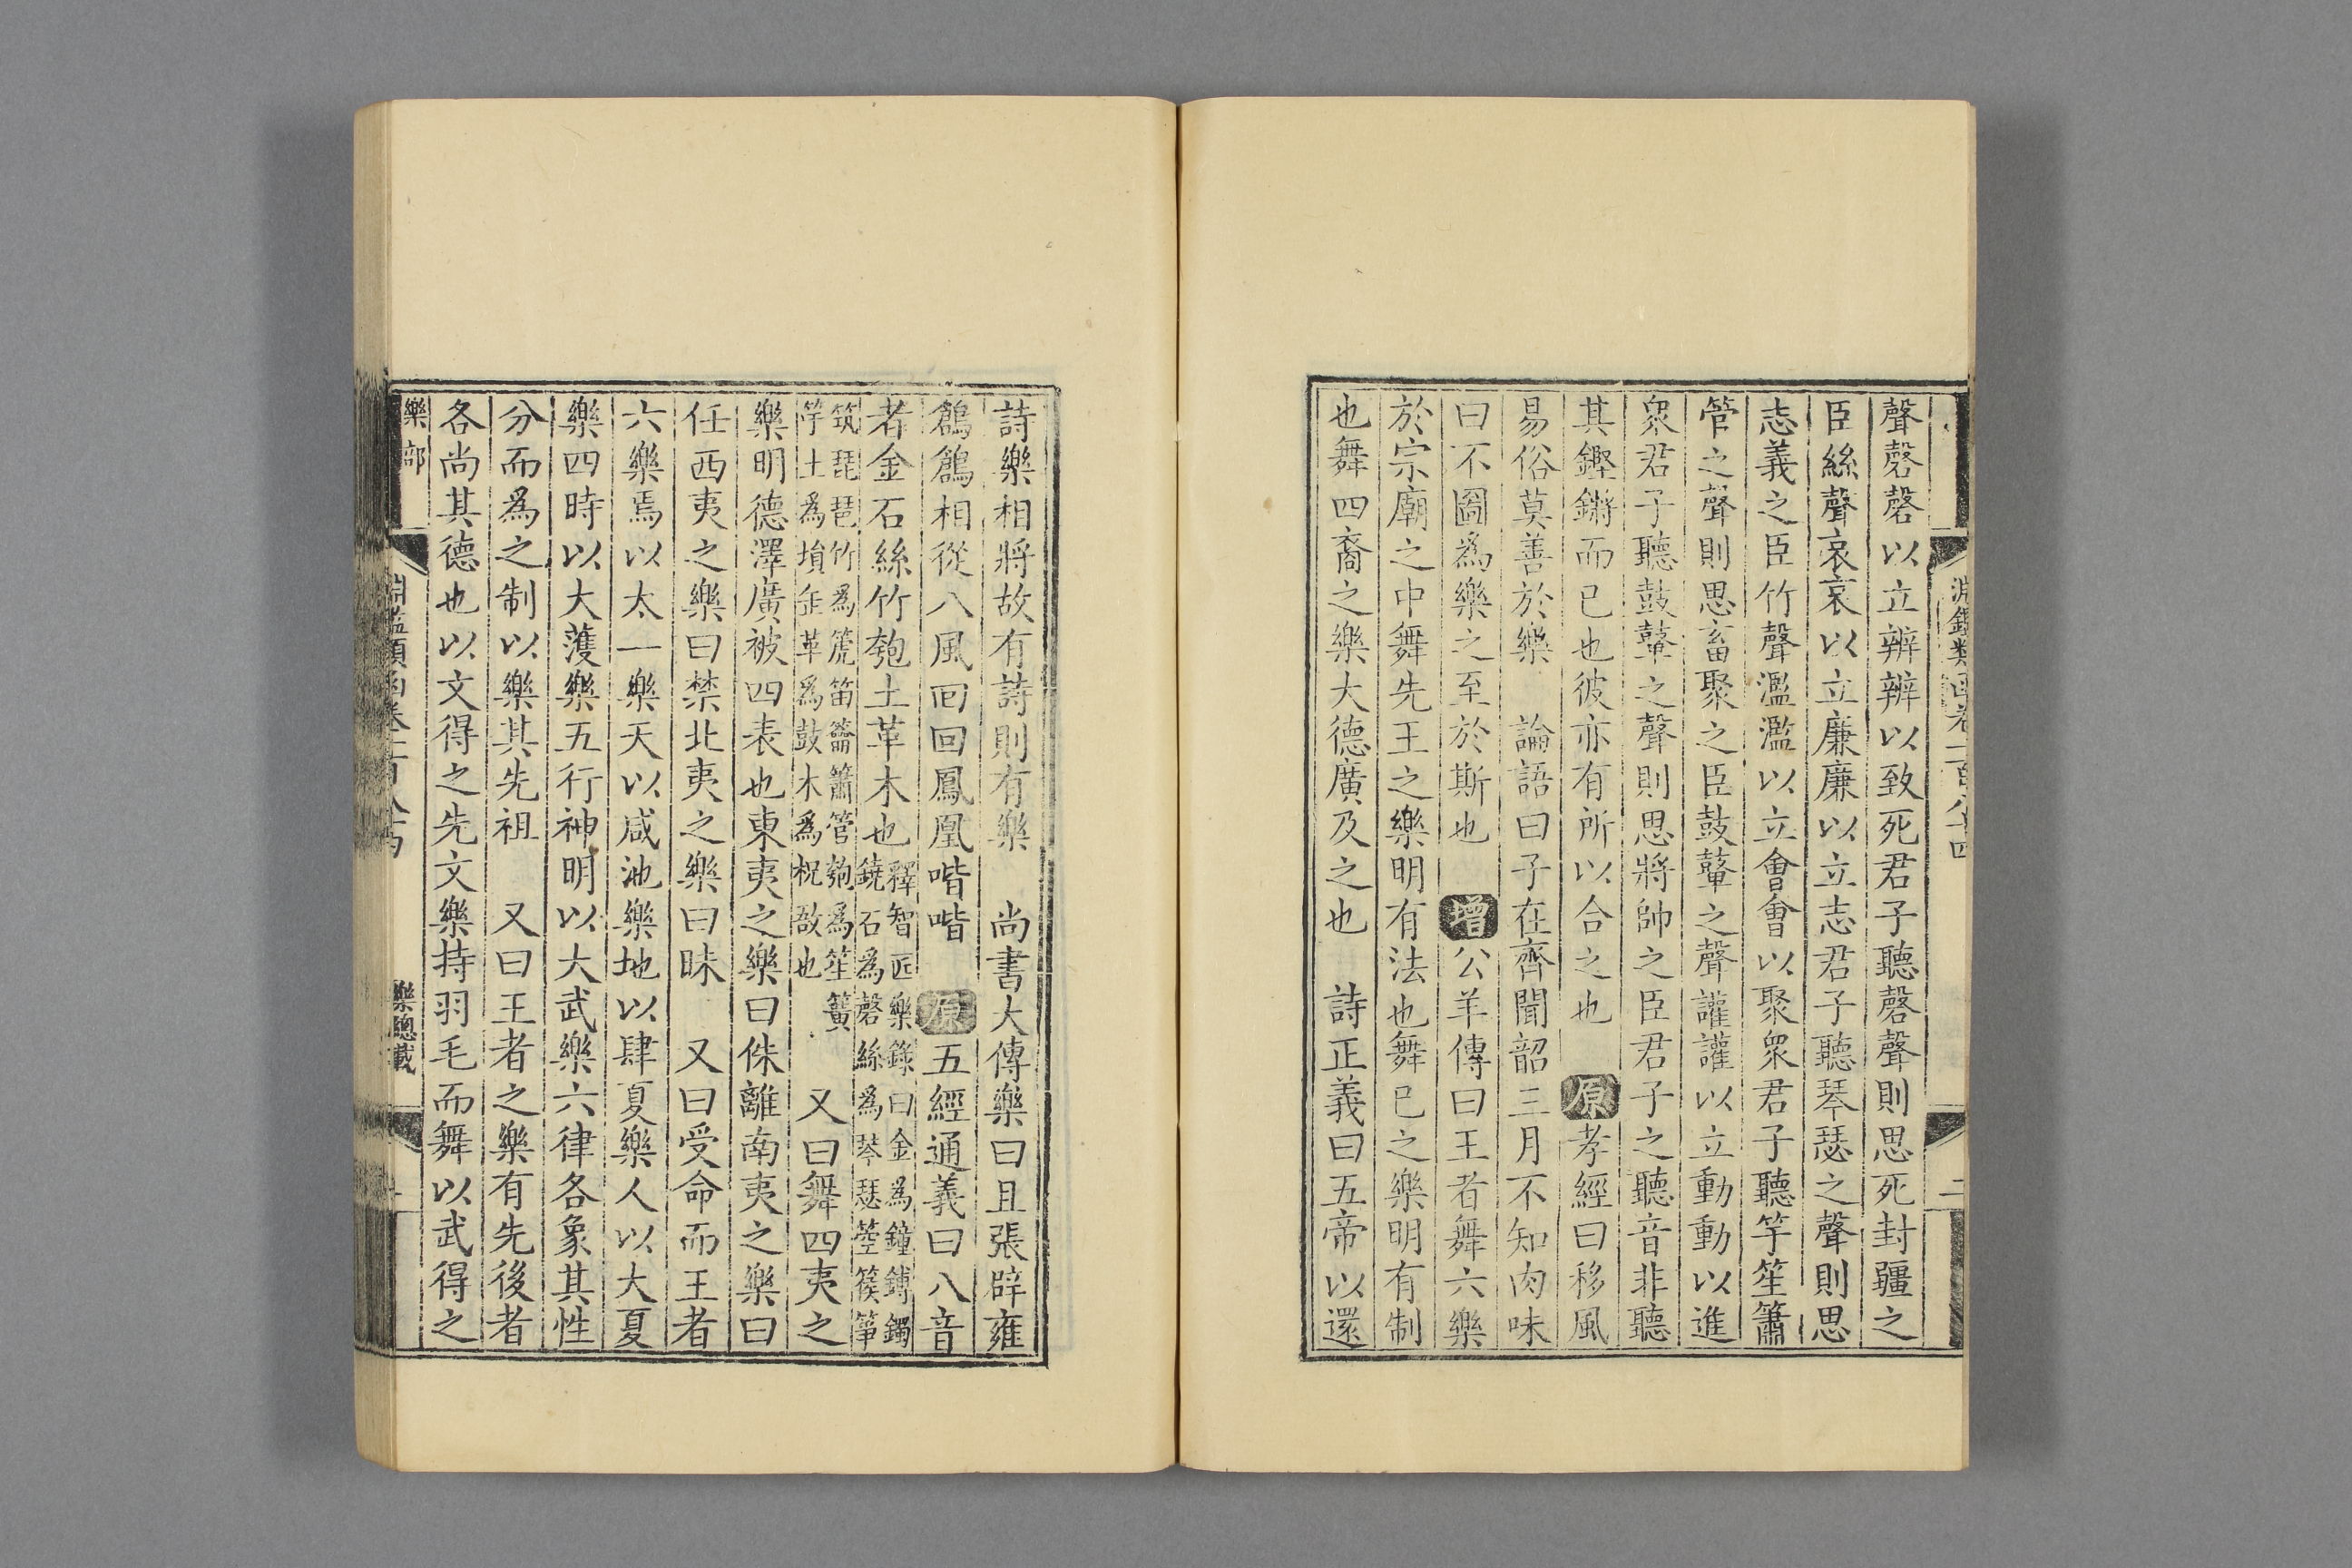 淵鑑類函卷一百八十四
二
聲磬磬以立辨辨以致死君子聽磬聲則思死封疆之
臣絲聲哀哀以立廉廉以立志君子聽琴瑟之聲則思
志義之臣竹聲濫濫以立會會以聚衆君子聽竽笙簫
管之聲則思畜聚之臣鼓鼙之聲讙讙以立動動以進
衆君子聽鼓鼙之聲則思將帥之臣君子之聽音非聽
其鏗鏘而已也彼亦有所以合之也 原 孝經曰移風
易俗莫善於樂 論語曰子在齊聞韶三月不知肉味
曰不圖爲樂之至於斯也 增 公羊傳曰王者舞六樂
於宗廟之中舞先王之樂明有法也舞已之樂明有制
也舞四裔之樂大德廣及之也 詩正義曰五帝以還
詩樂相將故有詩則有樂 尚書大傳樂曰且張辟雍
鶬鶬相從八風回回鳳凰喈喈 原 五經通義曰八音
者金石絲竹匏土革木也
釋智匠樂錄曰金爲鐘鎛鐲
鐃石爲磬絲爲琴瑟箜篌箏
筑琵琶竹爲箎笛籥簫管匏爲笙簧
竽土爲塤缶革爲鼓木爲柷敔也
又曰舞四夷之
樂明德澤廣被四表也東夷之樂曰侏離南夷之樂曰
任西夷之樂曰禁北夷之樂曰昧 又曰受命而王者
六樂焉以太一樂天以咸池樂地以肆夏樂人以大夏
樂四時以大濩樂五行神明以大武樂六律各象其性
分而爲之制以樂其先祖 又曰王者之樂有先後者
各尚其德也以文得之先文樂持羽毛而舞以武得之
樂部
淵鑑類函卷一百八十四
樂總載